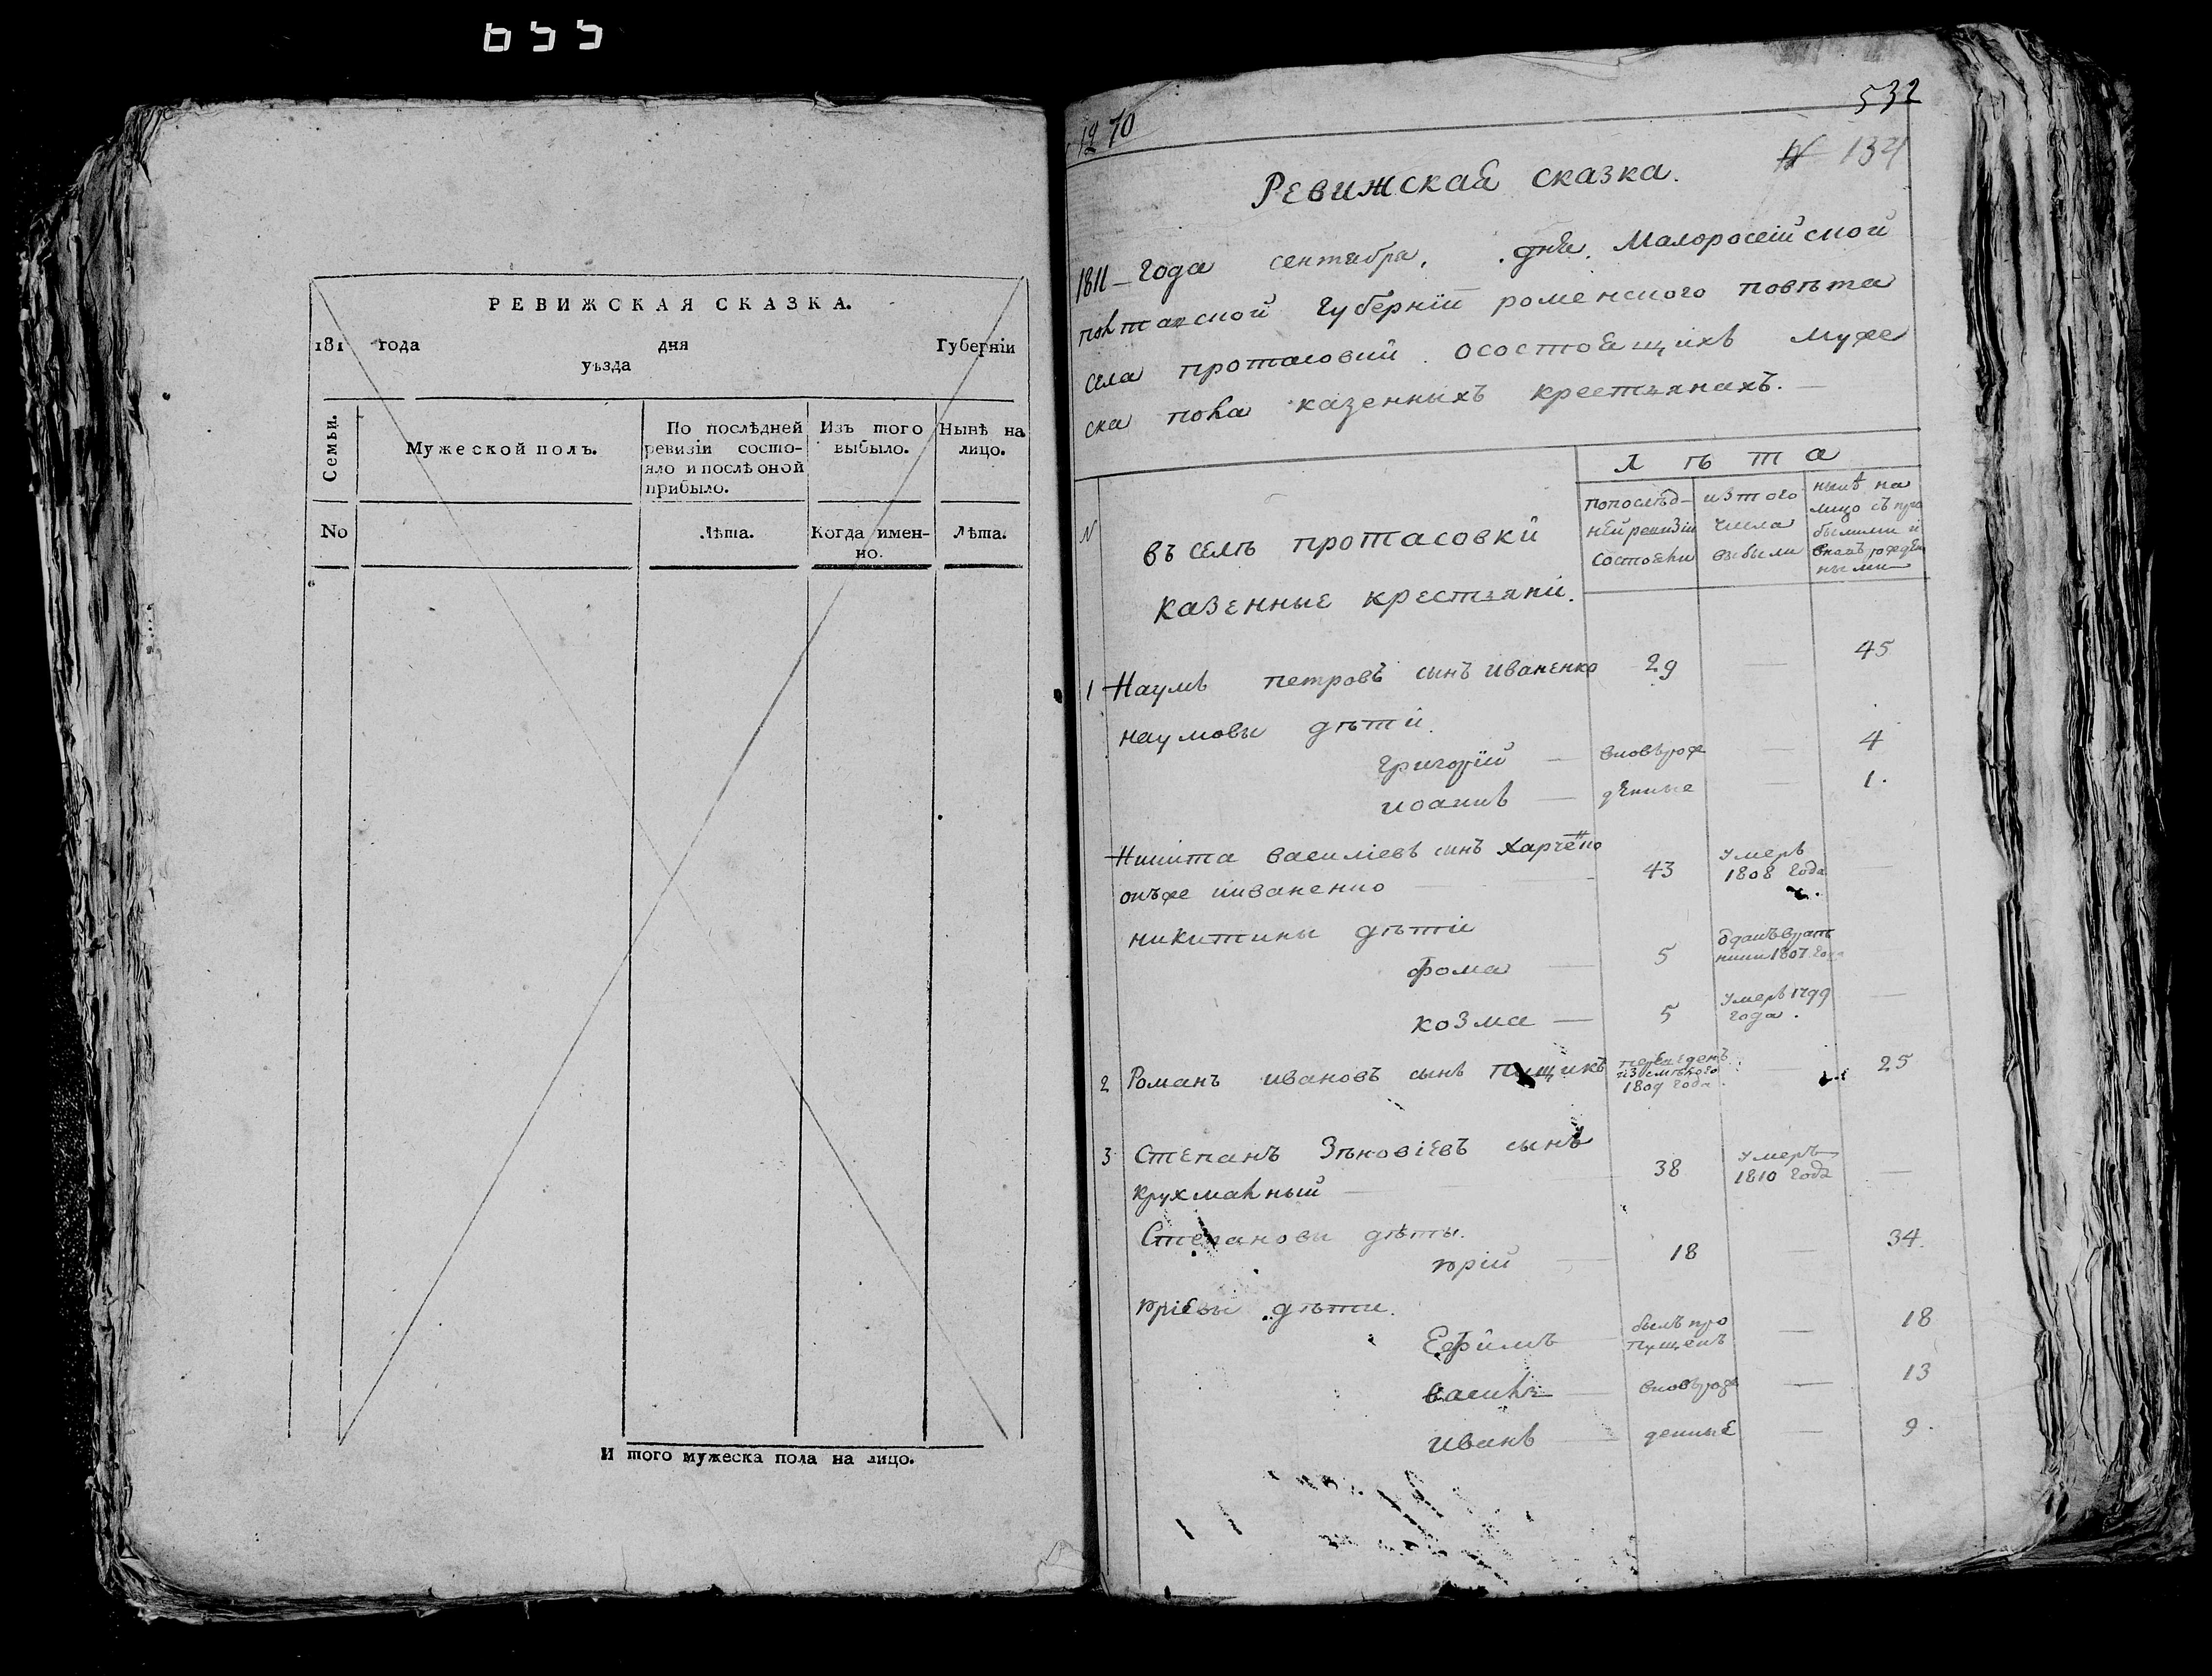 655
РЕВИЖСКАЯ СКАЗКА.
181 года дня Губерніи
уѣзда
Семьи.
Мужеской полъ.
По послѣдней ревизіи состо-
яло и послѣ оной
прибыло.
Изъ того
выбыло.
Нынѣ на
лицо.
No
Лѣта.
Когда имен-
но.
Лѣта.
И того мужеска пола на лицо.
1270
532
N 134
Ревижская сказка.
1811 года сентября, дня. Малоросейской
полтавской губерніи роменского повѣта
села протасовки о состоящихъ муже
ска пола казенныхъ крестянахъ.
Лѣта
N
въ селѣ протасовки
казенные крестяни.
по послѣд-
ней ревизіи
состояли
изтого
числа
выбыли
нынѣ на
лицо съ при
былими и
вновъ рожден
ными
1 Наумъ петровъ сынъ иваненко 29 — 45
наумовы дѣти
григорій — вновърож — 4
иоаннъ — денные — 1.
Никита василіевъ синъ Харченко
онъже иваненко — 43 умеръ 1808 года —
никитины дѣти
фома — 5 1807 года
козма — 5 умеръ 1799 года. —
2 Романъ ивановъ сынъ 1809 года. — 25
3 Степанъ Зѣновіевъ сынъ
крухмалный — 38 умеръ 1810 года —
Степановы дѣты.
юрій — 18 — 34.
юріевы дѣти.
Ефимъ — былъ про
пущенъ — 18
василь — вновърож — 13
иванъ — денные — 9.